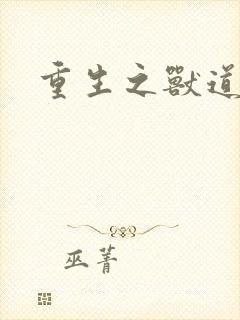 重生之獸道
巫菁